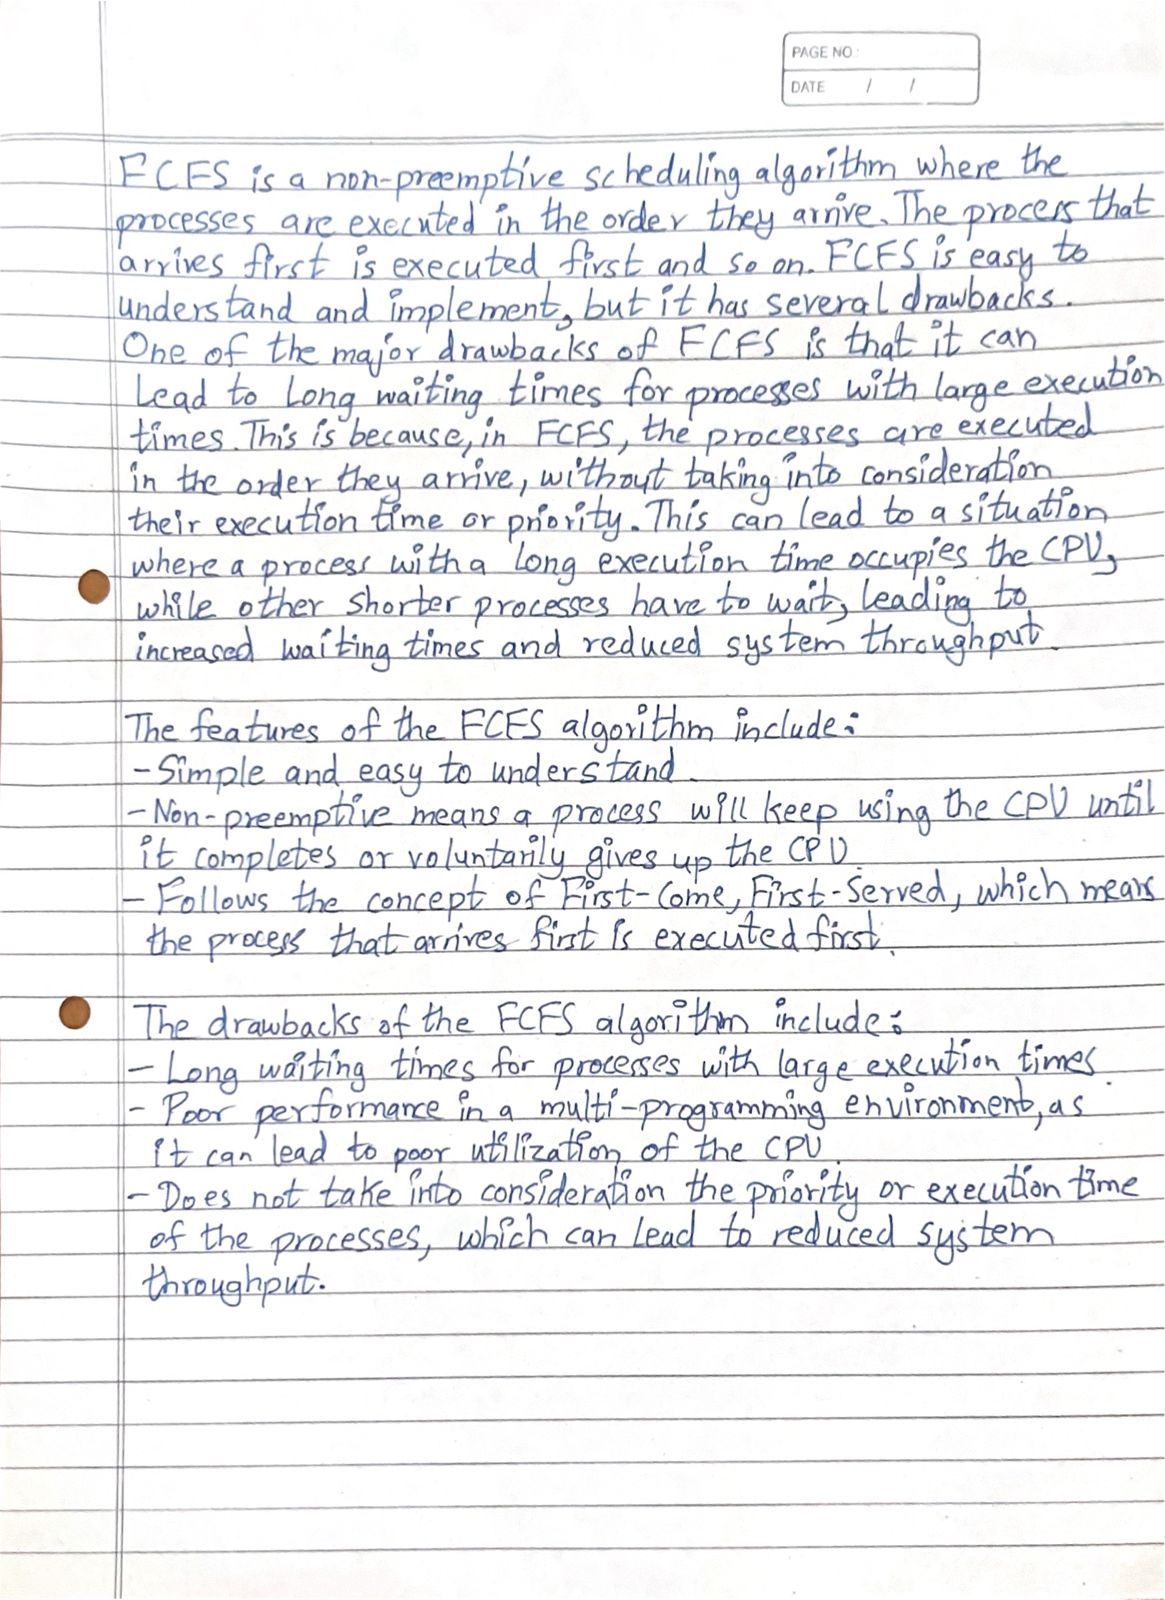 PAGE NO:
DATE / /
FCFS is a non-preemptive scheduling algorithm where the
processes are executed in the order they arrive. The process that
arrives first is executed first and so on. FCFS is easy to
understand and implement, but it has several drawbacks.
One of the major drawbacks of FCFS is that it can
Lead to Long waiting times for processes with large execution
times. This is because, in FCFS, the processes are executed
in the order they arrive, without taking into consideration
their execution time or priority. This can lead to a situation
where a process with a long execution time occupies the CPU,
while other shorter processes have to wait, leading to
increased waiting times and reduced system throughput.
The features of the FCFS algorithm include:
- Simple and easy to understand.
- Non-preemptive means a process will keep using the CPU until
it completes or voluntarily gives up the CPU.
- Follows the concept of First-Come, First-Served, which means
the process that arrives first is executed first.
The drawbacks of the FCFS algorithm include:
- Long waiting times for processes with large execution times.
- Poor performance in a multi-programming environment, as
it can lead to poor utilization of the CPU.
- Does not take into consideration the priority or execution time
of the processes, which can lead to reduced system
throughput.